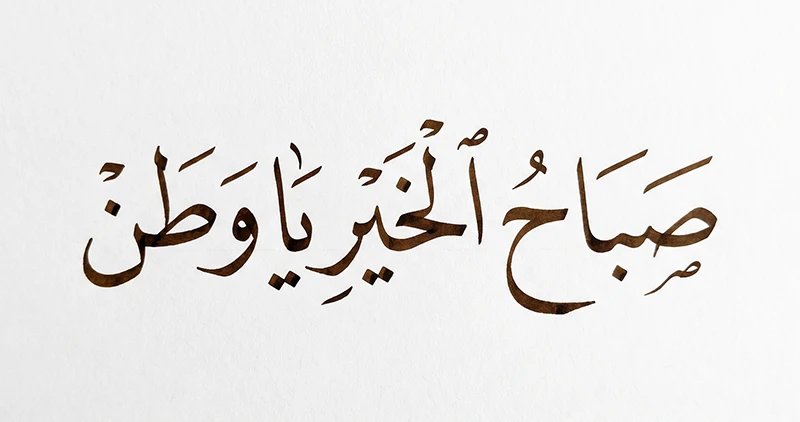 صَبَاحُ ٱلْخَيْرِ يَا وَطَنْ